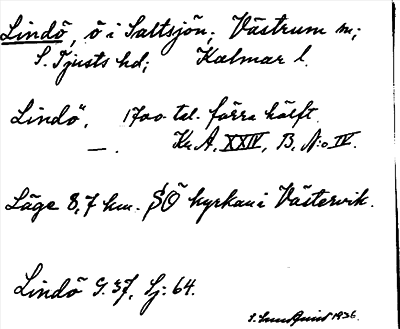 Lindö, ö i Saltsjön; Västrum sn;
S. Tjusts hd; Kalmar l.
Lindö. 1700-tal. förra hälft.
—. Kr. A. XXIV, B, N:o IV.
Läge 8,7 km. SÖ kyrkan i Västervik.
Lindö G. 37, Sj: 64.
S. Lundquist 1936.